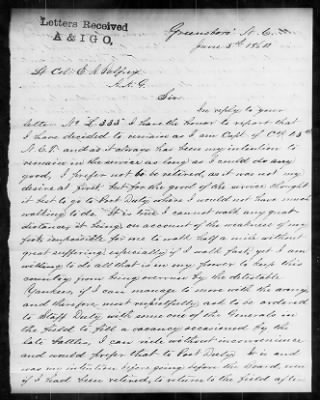 Letters Received
A & I G O.
Greensboro N. C.
June 5th 1864
Lt Col:
A. A. G.
Sir
In reply to your
letter No I have the Honor to report that
I have decided to remain as I am Capt of Co 
N. C. T. and as it always has been my intention to
remain in the service as long as I could do any
good, I prefer not to be retired, as it was not my
desire at first but for the good of the service thought
it best to go to Post Duty where I would not have much
walking to do. It is true I cannot walk any great
distances it being on account of the weakness of my
foot impossible for me to walk half a mile without
great suffering especially if I walk fast, yet I am
willing to do all that is in my power to keep this
country from being overrun by the detestable
Yankees if I can manage to move with the army
and therefore most respectfully ask to be ordered
to Staff Duty with some one of the Generals in
the field to fill a vacancy occasioned by the
late battles, I can ride without inconvenience
and would prefer that to Post Duty. It is and
was my intention before going before the Board, even
if I had been retired, to return to the field after